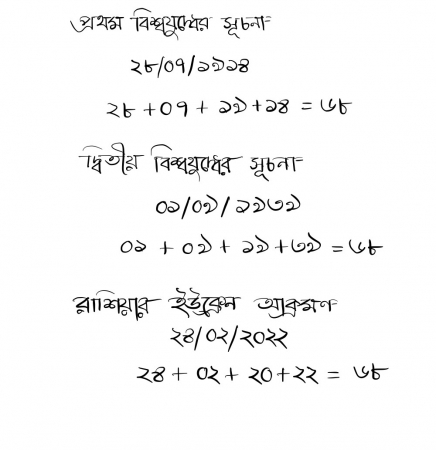 প্রথম বিশ্বযুদ্ধের সূচনা
২৮/০৭/১৯১৪
২৮ + ০৭ + ১৯ + ১৪ = ৬৮
দ্বিতীয় বিশ্বযুদ্ধের সূচনা
০১/০৯/১৯৩৯
০১ + ০৯ + ১৯ + ৩৯ = ৬৮
রাশিয়ার ইউক্রেন আক্রমণ
২৪/০২/২০২২
২৪ + ০২ + ২০ + ২২ = ৬৮